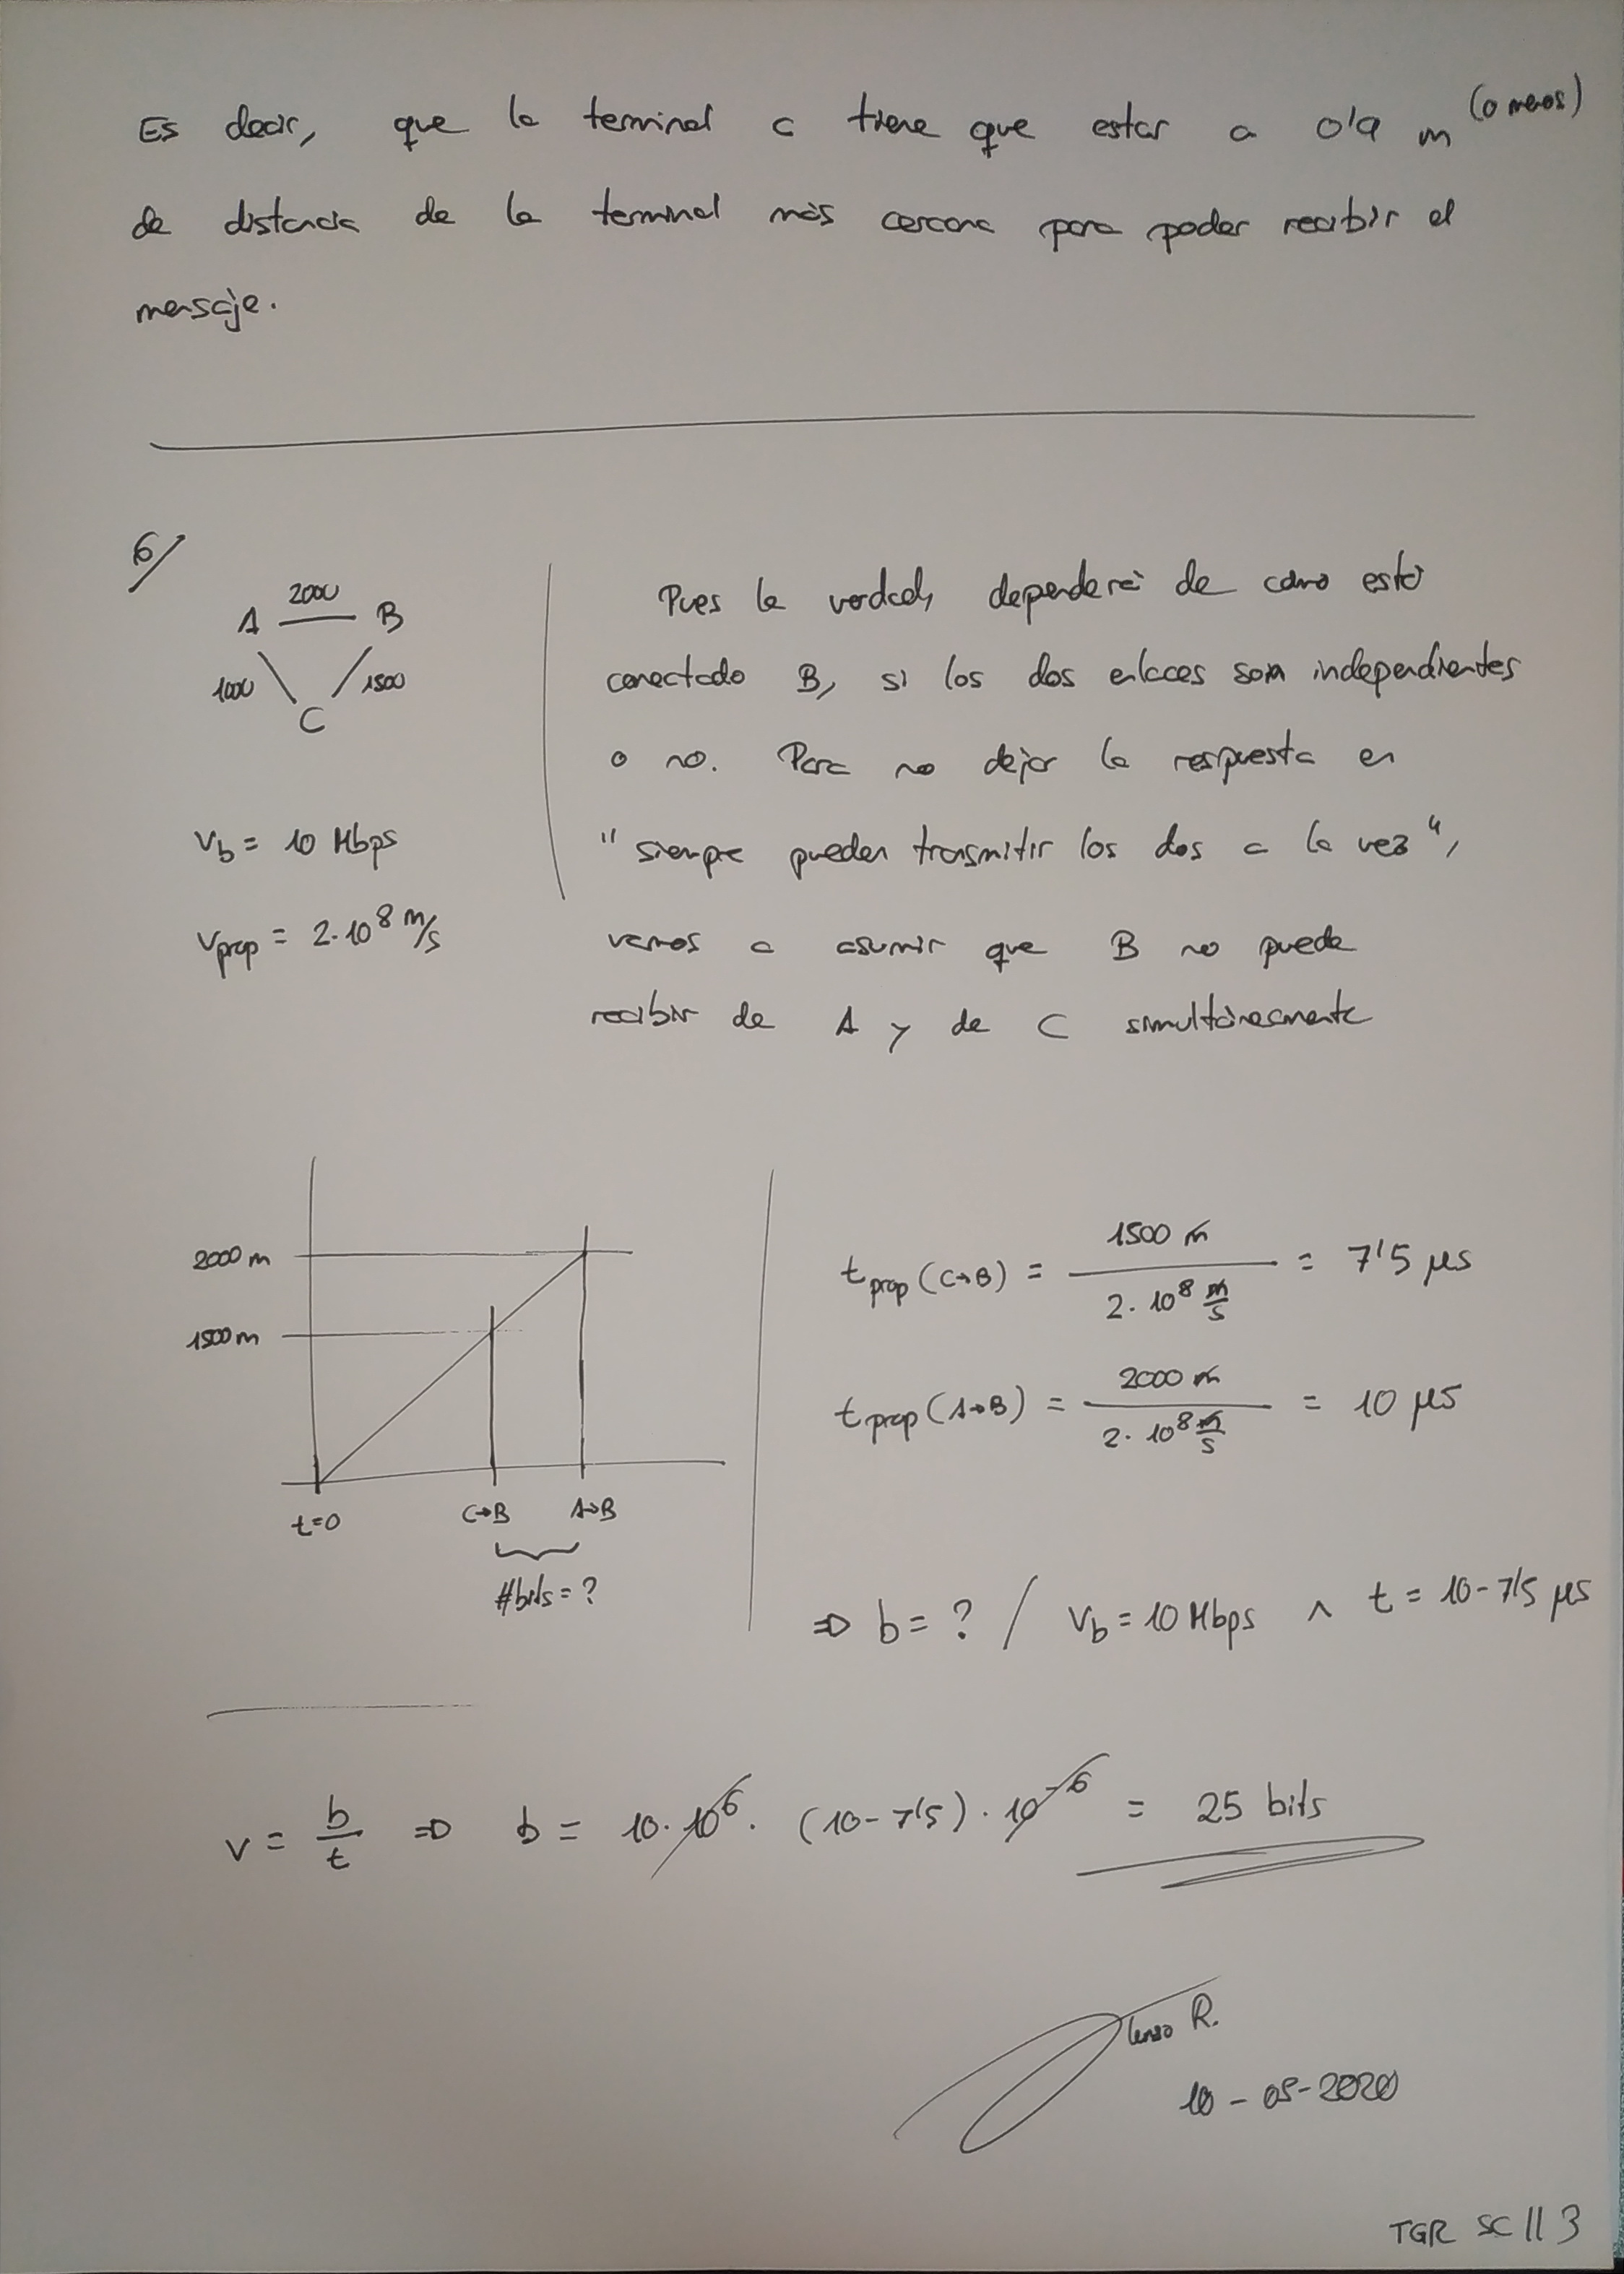 Es decir, que la terminal C tiene que estar a 0'9 m (o menos)
de distancia de la terminal más cercana para poder recibir el
mensaje.
6/
A 2000 B
1000 1500
C
Vb = 10 Mbps
Vprop = 2·10^8 m/s
Pues la verdad, dependerá de cómo esté
conectado B, si los dos enlaces son independientes
o no. Para no dejar la respuesta en
"siempre pueden transmitir los dos a la vez",
vamos a asumir que B no puede
recibir de A y de C simultáneamente
2000 m
1500 m
t=0 C→B A→B
#bits = ?
t prop (C→B) = 1500 m / 2·10^8 m/s = 7'5 μs
t prop (A→B) = 2000 m / 2·10^8 m/s = 10 μs
⇒ b = ? / Vb = 10 Mbps ∧ t = 10 - 7'5 μs
v = b/t ⇒ b = 10·10^6 · (10 - 7'5) · 10^-6 = 25 bits
R.
10 - 05 - 2020
TGR SC || 3